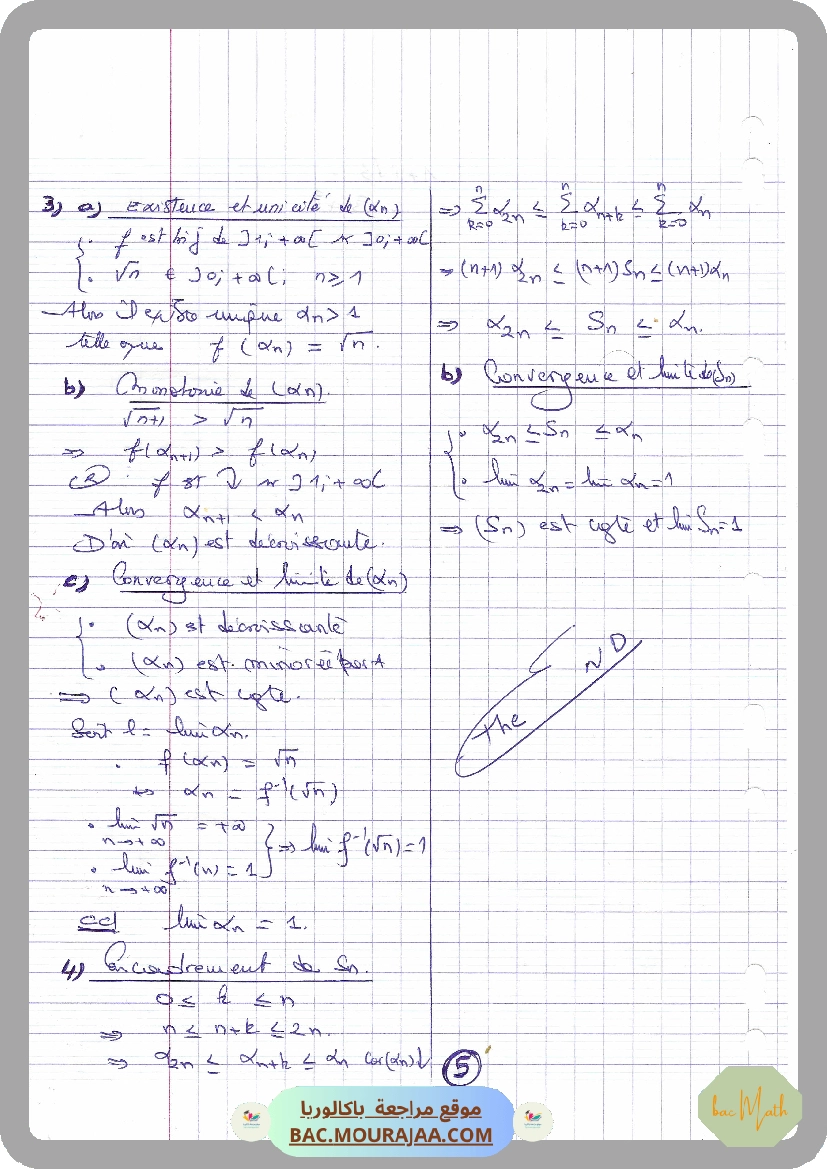 3) a) Existence et unicité de (αn)
. f est bij de ]1; +∞[ sur ]0; +∞[
. √n ∈ ]0; +∞[; n ≥ 1
Alors il existe unique αn > 1
telle que f(αn) = √n.
b) Monotonie de (αn).
√n+1 > √n
⇒ f(αn+1) > f(αn)
f est ↓ sur ]1; +∞[
Alors αn+1 < αn
D'où (αn) est décroissante.
c) Convergence et limite de (αn)
. (αn) est décroissante
. (αn) est minorée par 1
⇒ (αn) est cgte.
Soit l = lim αn.
. f(αn) = √n
⇔ αn = f⁻¹(√n)
. lim √n = +∞
n→+∞
⇒ lim f⁻¹(√n) = 1
. lim f⁻¹(n) = 1
n→+∞
ccl lim αn = 1.
4) Encadrement de Sn.
0 ≤ k ≤ n
⇒ n ≤ n+k ≤ 2n.
⇒ α2n ≤ αn+k ≤ αn car (αn)↓
⇒ n∑k=0 α2n ≤ n∑k=0 αn+k ≤ n∑k=0 αn
⇒ (n+1) α2n ≤ (n+1) Sn ≤ (n+1) αn
⇒ α2n ≤ Sn ≤ αn.
b) Convergence et limite de (Sn)
. α2n ≤ Sn ≤ αn
. lim α2n = lim αn = 1
⇒ (Sn) est cgte et lim Sn = 1
The END
5
موقع مراجعة باكالوريا
BAC.MOURAJAA.COM
bac Math